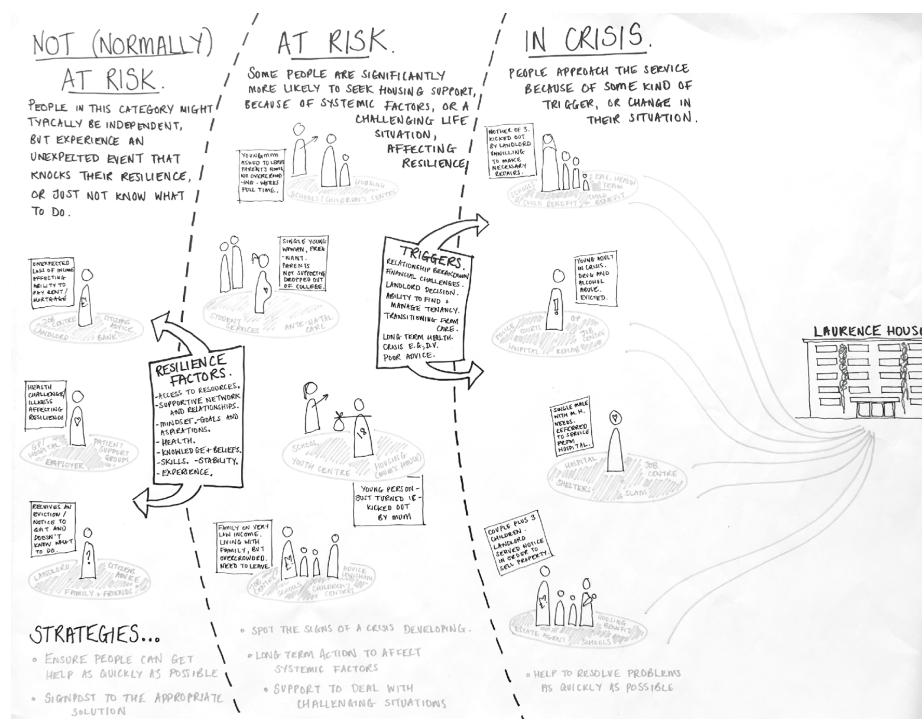 NOT (NORMALLY)
AT RISK.
PEOPLE IN THIS CATEGORY MIGHT
TYPICALLY BE INDEPENDENT,
BUT EXPERIENCE AN
UNEXPECTED EVENT THAT
KNOCKS THEIR RESILIENCE,
OR JUST NOT KNOW WHAT
TO DO.
UNEXPECTED
LOSS OF INCOME
AFFECTING
ABILITY TO
PAY RENT/
MORTGAGE
JOB
CENTRE
CITIZENS ADVICE
LANDLORD
BANK
HEALTH
CHALLENGE/
ILLNESS
AFFECTING
RESILIENCE
GP/
HOSPITAL
PATIENT
SUPPORT
GROUPS
EMPLOYER
RECEIVES AN
EVICTION/
NOTICE TO
QUIT AND
DOESN'T
KNOW WHAT
TO DO.
?
LANDLORD
CITIZENS
ADVICE
FAMILY + FRIENDS
RESILIENCE
FACTORS.
-ACCESS TO RESOURCES.
-SUPPORTIVE NETWORK
AND RELATIONSHIPS.
-MINDSET-GOALS AND
ASPIRATIONS.
-HEALTH.
-KNOWLEDGE + BELIEFS.
-SKILLS. -STABILITY.
-EXPERIENCE.
STRATEGIES...
• ENSURE PEOPLE CAN GET
HELP AS QUICKLY AS POSSIBLE
• SIGNPOST TO THE APPROPRIATE
SOLUTION
AT RISK.
SOME PEOPLE ARE SIGNIFICANTLY
MORE LIKELY TO SEEK HOUSING SUPPORT,
BECAUSE OF SYSTEMIC FACTORS, OR A
CHALLENGING LIFE
SITUATION,
AFFECTING
RESILIENCE
YOUNG MUM
ASKED TO LEAVE
PARENTS HOME
WORKS
FULL TIME.
HOUSING
SCHOOLS/CHILDREN'S CENTRE
SINGLE YOUNG
WOMAN, PREG
-NANT.
PARENTS
NOT SUPPORTING
DROPPED OUT
OF COLLEGE.
STUDENT
SERVICES
ANTE-NATAL
CARE
SCHOOL
YOUTH CENTRE
HOUSING
(MUM'S HOUSE)
18
YOUNG PERSON-
JUST TURNED 18-
KICKED OUT
BY MUM
FAMILY ON VERY
LOW INCOME.
LIVING WITH
FAMILY, BUT
OVERCROWDED.
NEED TO LEAVE.
JOB
CENTRE
SCHOOLS
CHILDREN'S
CENTRES
ADVICE
LEWISHAM
• SPOT THE SIGNS OF A CRISIS DEVELOPING.
• LONG TERM ACTION TO AFFECT
SYSTEMIC FACTORS
• SUPPORT TO DEAL WITH
CHALLENGING SITUATIONS
TRIGGERS.
RELATIONSHIP BREAKDOWN
FINANCIAL CHALLENGES.
LANDLORD DECISION.
ABILITY TO FIND +
MANAGE TENANCY.
TRANSITIONING FROM
CARE.
LONG TERM HEALTH.
CRISIS E.G, D.V.
POOR ADVICE.
IN CRISIS.
PEOPLE APPROACH THE SERVICE
BECAUSE OF SOME KIND OF
TRIGGER, OR CHANGE IN
THEIR SITUATION.
MOTHER OF 3.
KICKED OUT
BY LANDLORD
UNWILLING
TO MAKE
NECESSARY
REPAIRS.
SCHOOLS
HEALTH
TEAM
CHILD BENEFIT
BENEFIT
YOUNG ADULT
IN CRISIS.
DRUG AND
ALCOHOL
ABUSE.
EVICTED.
POLICE
COURTS
GP
JOB CENTRE
HOSPITAL
REHAB
SINGLE MALE
WITH M.H.
NEEDS.
REFERRED
TO SERVICE
FROM
HOSPITAL.
HOSPITAL
JOB
CENTRE
SHELTERS
SLAM
COUPLE PLUS 3
CHILDREN.
LANDLORD
SERVED NOTICE
IN ORDER TO
SELL PROPERTY.
ESTATE AGENTS
HOUSING
BENEFIT
SCHOOLS
• HELP TO RESOLVE PROBLEMS
AS QUICKLY AS POSSIBLE
LAURENCE HOUS